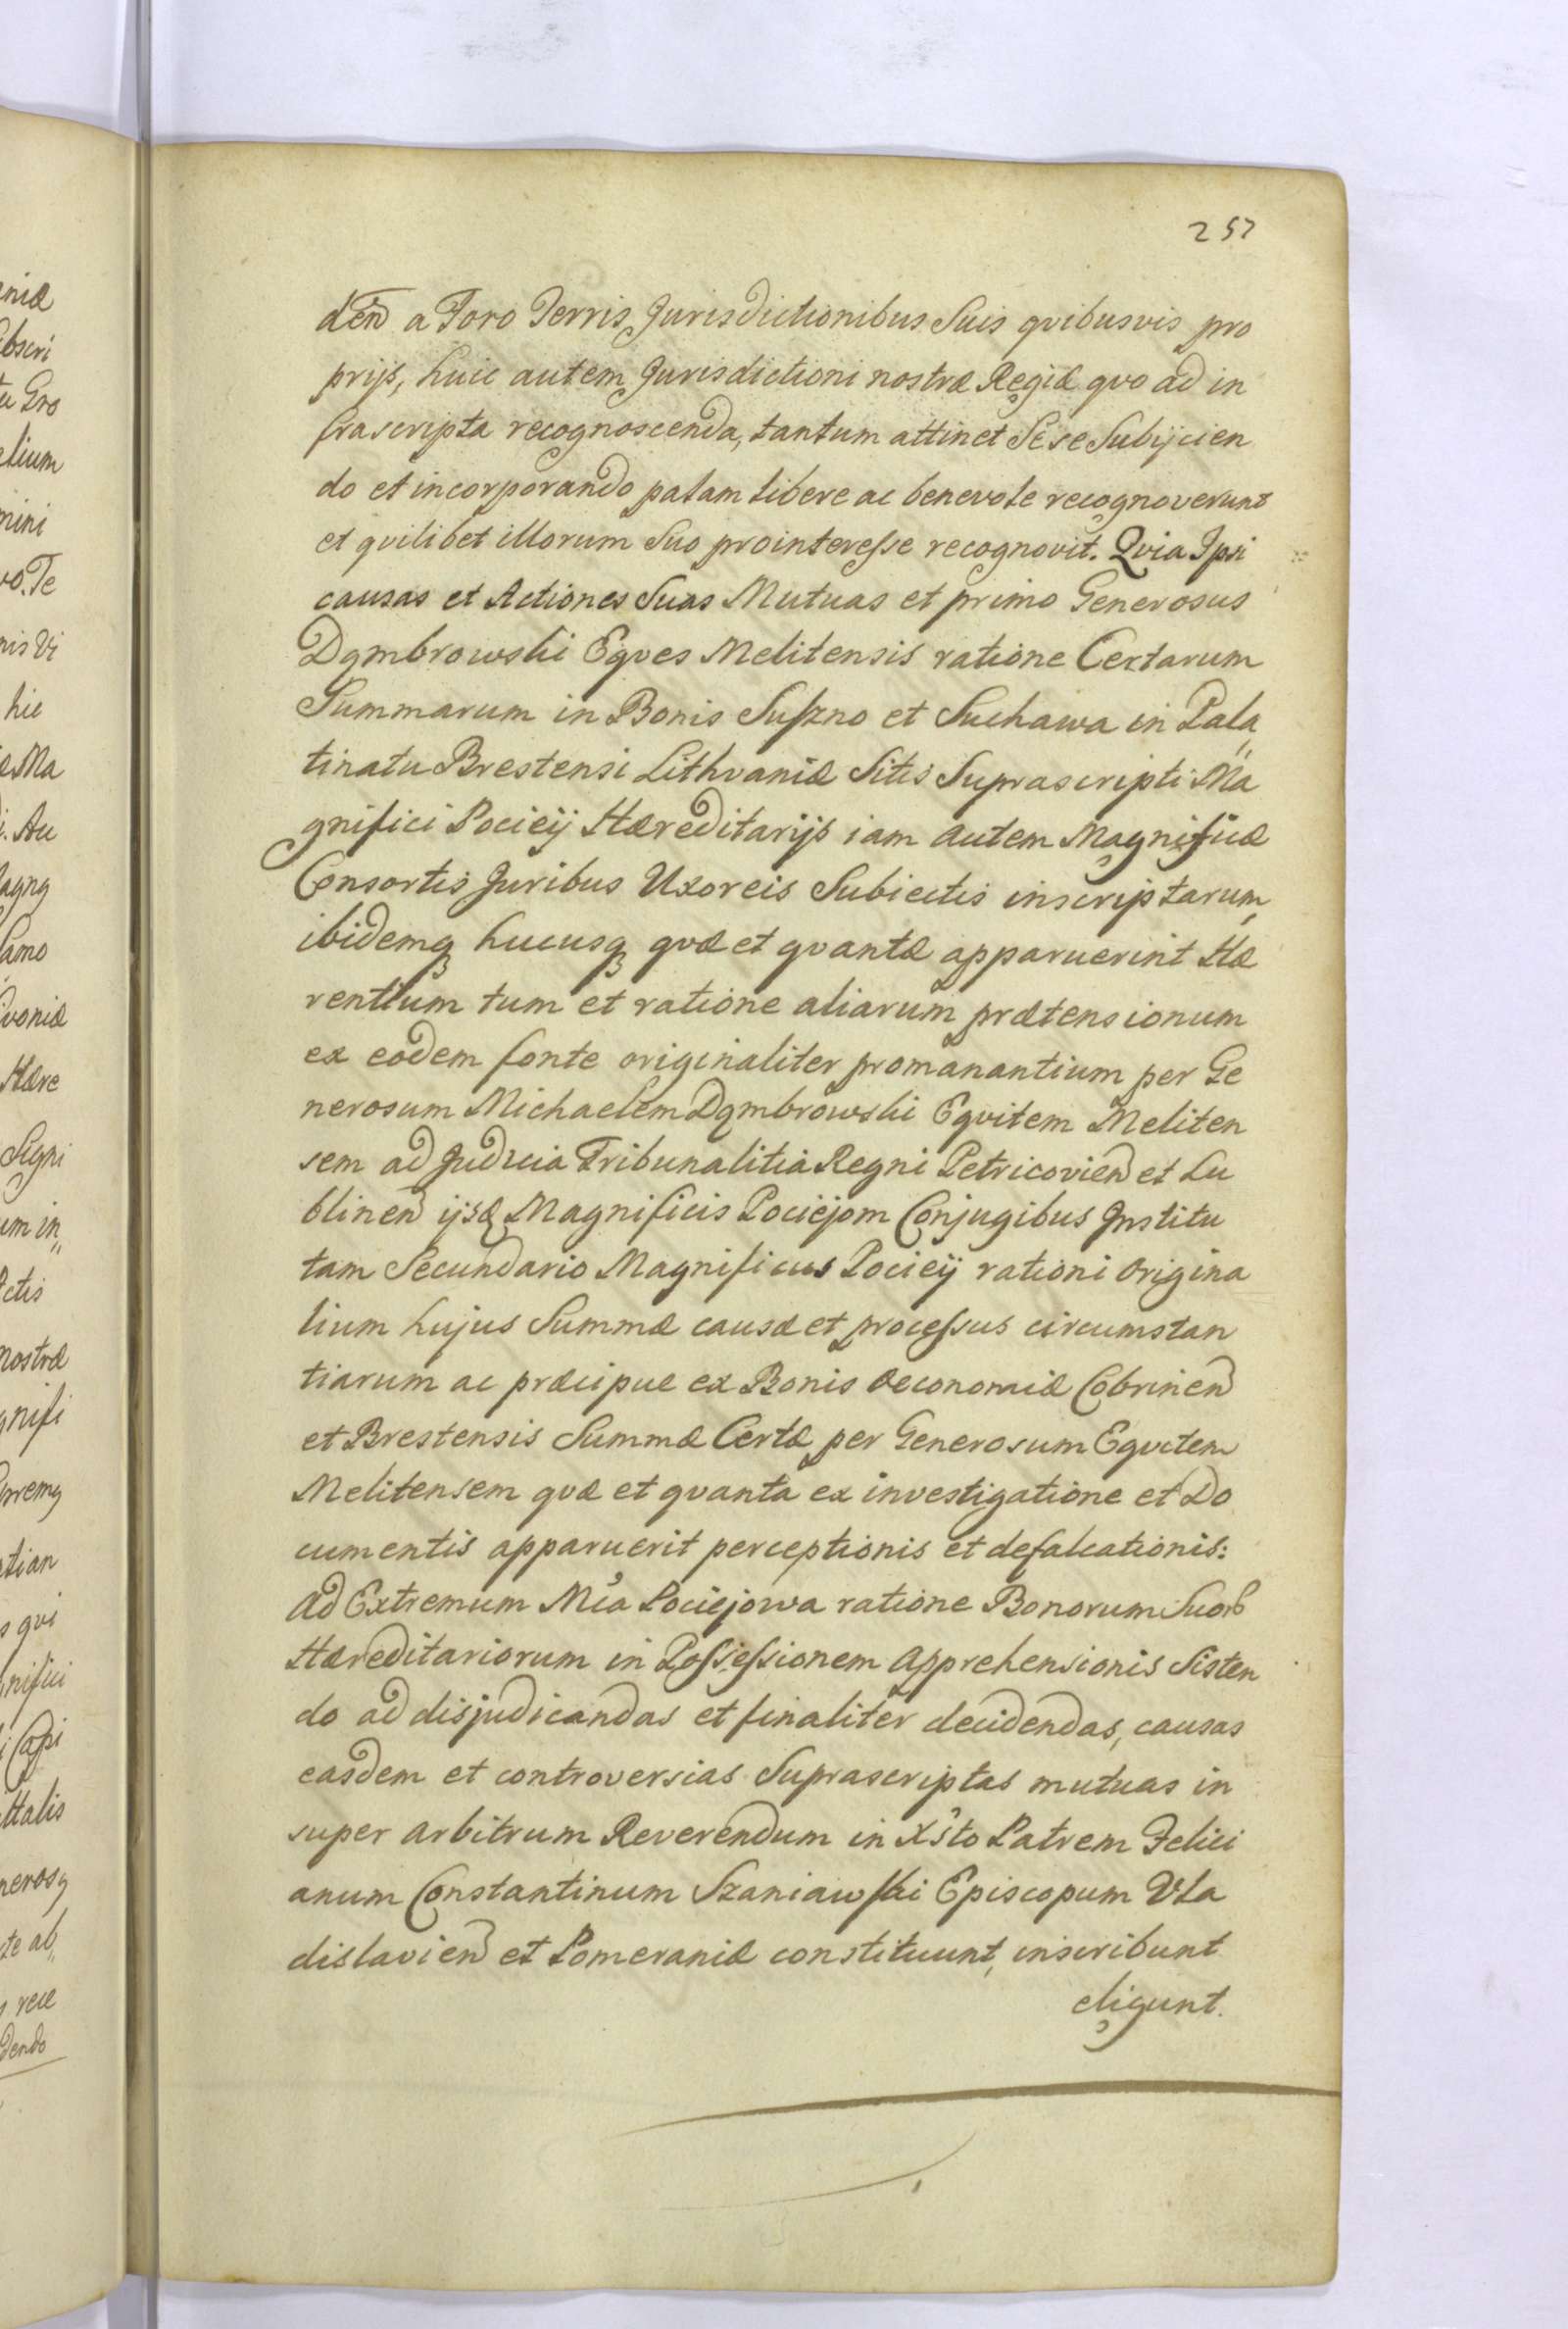 257
dēn a Foro Terris Jurisdictionibus Suis qvibusvis pro
prijs, huic autem Jurisdictioni nostræ Regiæ qvo ad in
frascripta recognoscenda, tantum attinet Sese Subijcien
do et incorporando palam libere ac benevole recognoverunt
et qvilibet illorum Suo prointeresse recognovit. Qvia Ipsi
causas et Actiones Suas Mutuas et primo Generosus
Dąmbrowski Eqves Melitensis ratione Certarum
Summarum in Bonis Suszno et Suchawa in Pala„
tinatu Brestensi Lithvaniæ Sitis Suprascripti Ma
gnifici Pociey Hæreditarijs iam autem Magnificæ
Consortis Juribus Uxoreis Subiectis inscriptarum,
ibidemq hucusq qvæ et qvantæ apparuerint Hæ
rentium tum et ratione aliarum prætensionum
ex eodem fonte originaliter promanantium per Ge
nerosum Michaelem Dąmbrowski Eqvitem Meliten
sem ad Judicia Tribunalitia Regni Petricovien et Lu
blinen ijsq Magnificis Pociejom Conjugibus Institu
tam Secundario Magnificus Pociey rationi Origina
lium hujus Summæ causæ et processus circumstan
tiarum ac præcipue ex Bonis Oeconomiæ Cobrinen
et Brestensis Summæ Certæ per Generosum Eqvitem
Melitensem qvæ et qvanta ex investigatione et Do
cumentis apparuerit perceptionis et defalcationis:
Ad Extremum Mca Pociejowa ratione Bonorum Suorb
Hæreditariorum in Possessionem Apprehensionis Sisten
do ad disjudicandas et finaliter decidendas, causas
easdem et controversias Suprascriptas mutuas in
super Arbitrum Reverendum in Xsto Patrem Felici
anum Constantinum Szaniawski Episcopum Vla
dislavien et Pomeraniæ constituunt, inscribunt
eligunt.